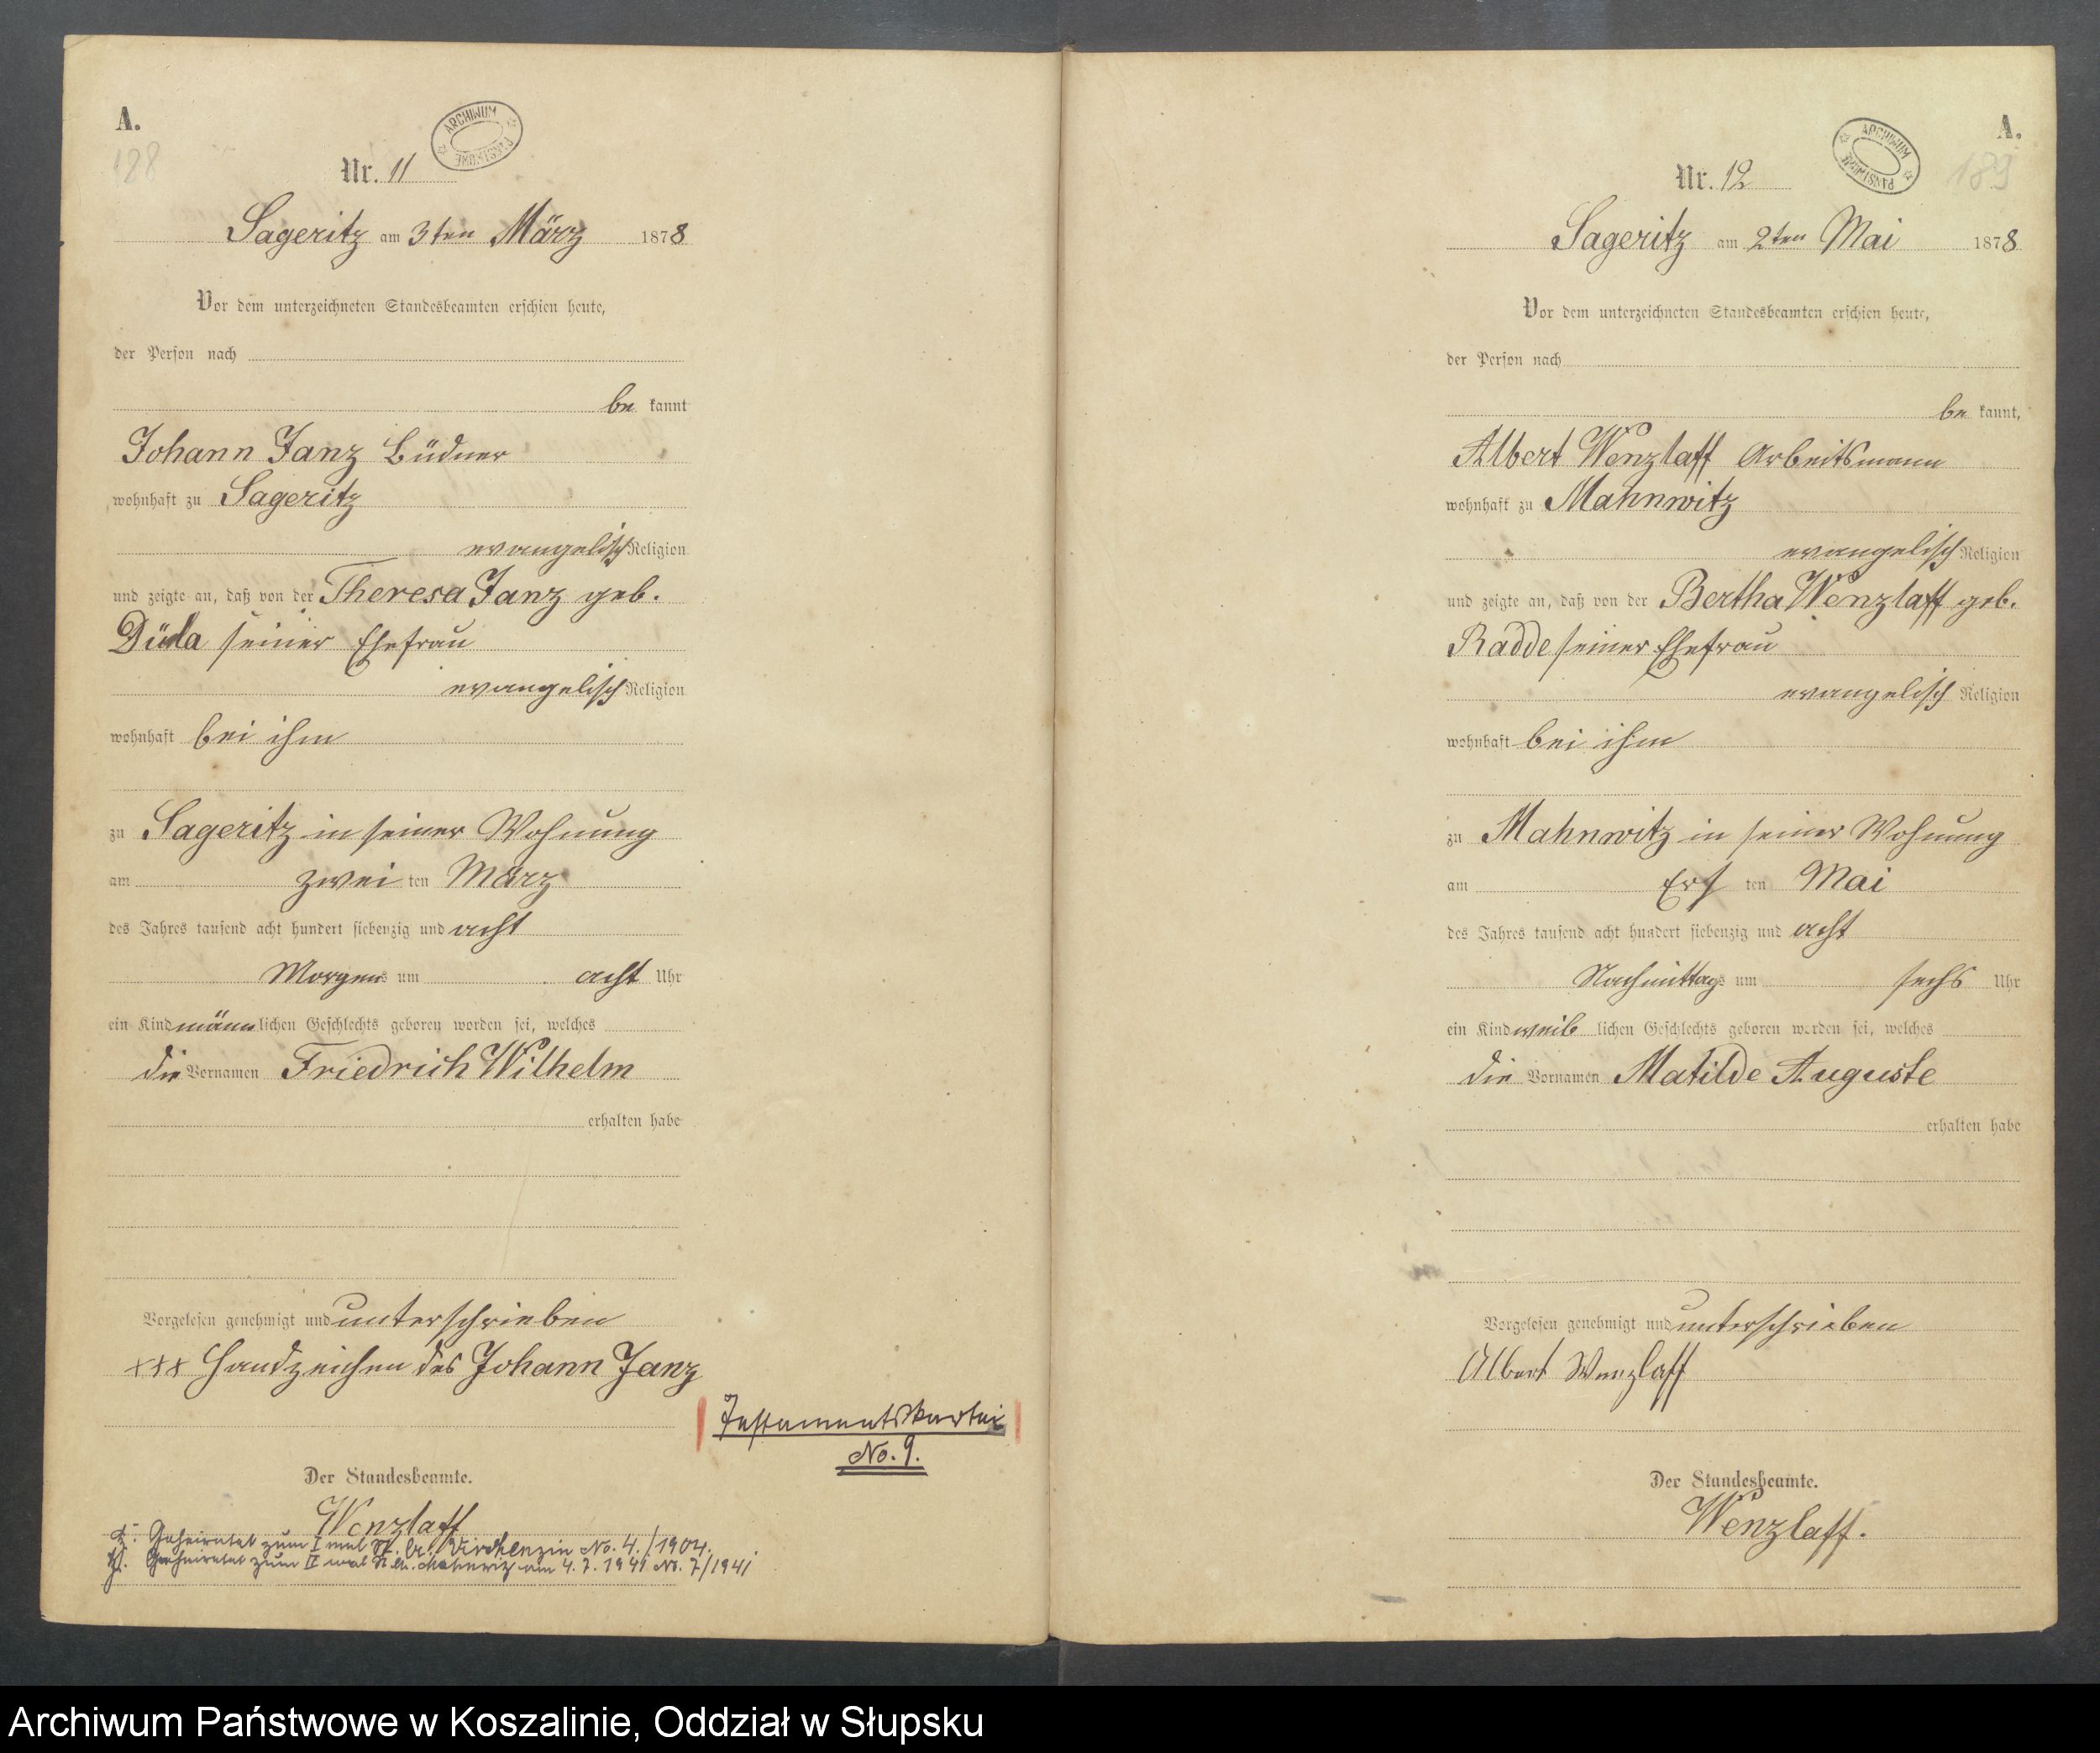 A.
128
ARCHIWUM PAŃSTWOWE
Nr. 11
Sageritz am 3ten März 1878
Vor dem unterzeichneten Standesbeamten erschien heute,
der Person nach
be kannt
Johann Janz Büdner
wohnhaft zu Sageritz
evangelisch Religion
und zeigte an, daß von der Theresa Janz geb.
Düda seiner Ehefrau
evangelisch Religion
wohnhaft bei ihm
zu Sageritz in seiner Wohnung
am zwei ten März
des Jahres tausend acht hundert siebenzig und acht
Morgens um acht Uhr
ein Kind männlichen Geschlechts geboren worden sei, welches
die Vornamen Friedrich Wilhelm
erhalten habe
Vorgelesen genehmigt und unterschrieben
xxx Handzeichen des Johann Janz
Testamentskartei
No. 9.
Der Standesbeamte.
Wenzlaff
Geheiratet zum I mal St. A. Virchenzin No. 4./1904.
Geheiratet zum II mal St. A. Mahnwitz am 4.7.1941 No. 7/1941
A.
189
ARCHIWUM PAŃSTWOWE
Nr. 12
Sageritz am 2ten Mai 1878
Vor dem unterzeichneten Standesbeamten erschien heute,
der Person nach
be kannt,
Albert Wenzlaff Arbeitsmann
wohnhaft zu Mahnwitz
evangelisch Religion
und zeigte an, daß von der Bertha Wenzlaff geb.
Radde seiner Ehefrau
evangelisch Religion
wohnhaft bei ihm
zu Mahnwitz in seiner Wohnung
am Ers ten Mai
des Jahres tausend acht hundert siebenzig und acht
Nachmittags um sechs Uhr
ein Kind weib lichen Geschlechts geboren worden sei, welches
die Vornamen Matilde Auguste
erhalten habe
Vorgelesen genehmigt und unterschrieben
Albert Wenzlaff
Der Standesbeamte.
Wenzlaff.
Archiwum Państwowe w Koszalinie, Oddział w Słupsku